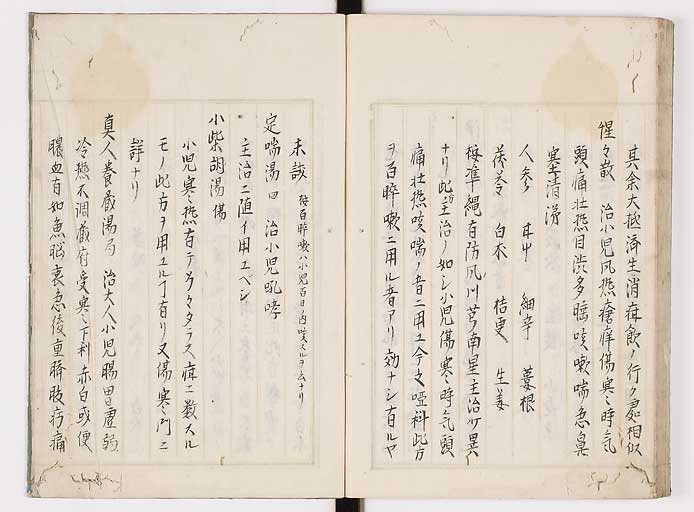 其余大抵済生消痰飲ノ行ク処相似
惺々散 治小児風熱瘡痒傷寒時気
頭痛壮熱目渋多睡咳嗽喘急鼻
塞清涕
人参 甘中 細辛 蔞根
茯苓 白朮 桔更 生姜
按準縄有防風川芎南星主治少異
ナリ此方主治ノ如シ小児傷寒時気頭
痛壮熱咳喘ノ者ニ用ユ今々啞科此方
ヲ百晬嗽ニ用ル者アリ効ナシ百ルヤ
未詳 按百晬嗽ハ小児百日ノ内咳スルヲ云ナリ
定喘湯 回 治小児吼哮
主治ニ随イ用ユベシ
小柴胡湯 傷
小児寒熱有テ
モノ此方ヲ用ユルコ有リ又傷寒門ニ
詳ナリ
真人養蔵湯 局 治大人小児腸胃虚弱
冷熱不調蔵府受寒下利赤白或便
膿血有如魚脳裏急後重臍腹疠痛